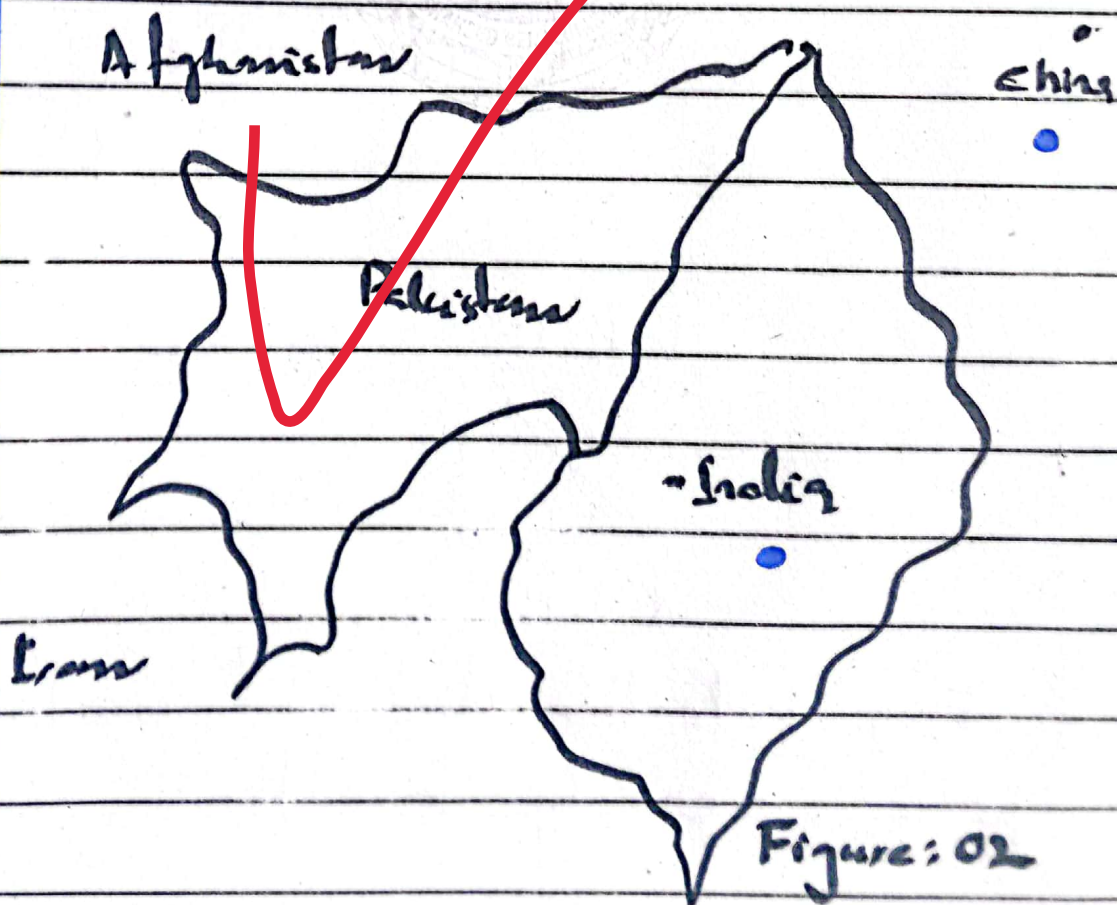 Afghanistan
China
Pakistan
India
Iran
Figure: 02